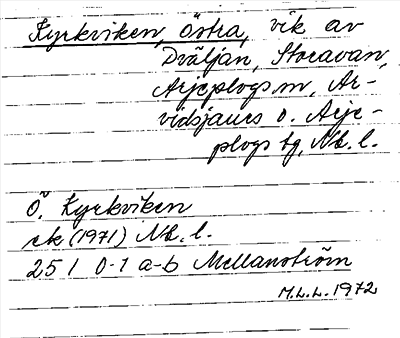 Kyrkviken, Östra, vik av
Dväljan, Storavan,
Arjeplogs sn, Ar-
vidsjaurs o. Arje-
plogs tg, Nb. l.
Ö. Kyrkviken
ek (1971) Nb. l.
25 I 0-1 a-b Mellanström
M.L.L. 1972